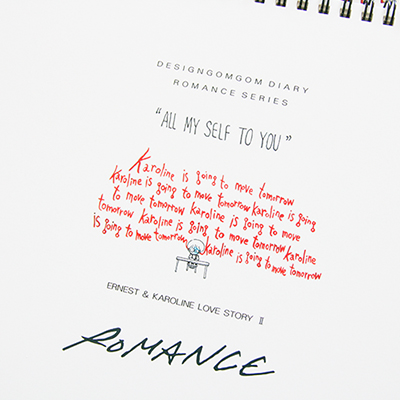 DESIGNGOMGOM DIARY
ROMANCE SERIES
"ALL MY SELF TO YOU"
Karoline is going to move tomorrow
Karoline is going to move tomorrow Karoline is going
to move tomorrow Karoline is going to move
tomorrow Karoline is going to move tomorrow Karoline
is going to move tomorrow Karoline is going to move tomorrow
ERNEST & KAROLINE LOVE STORY II
ROMANCE